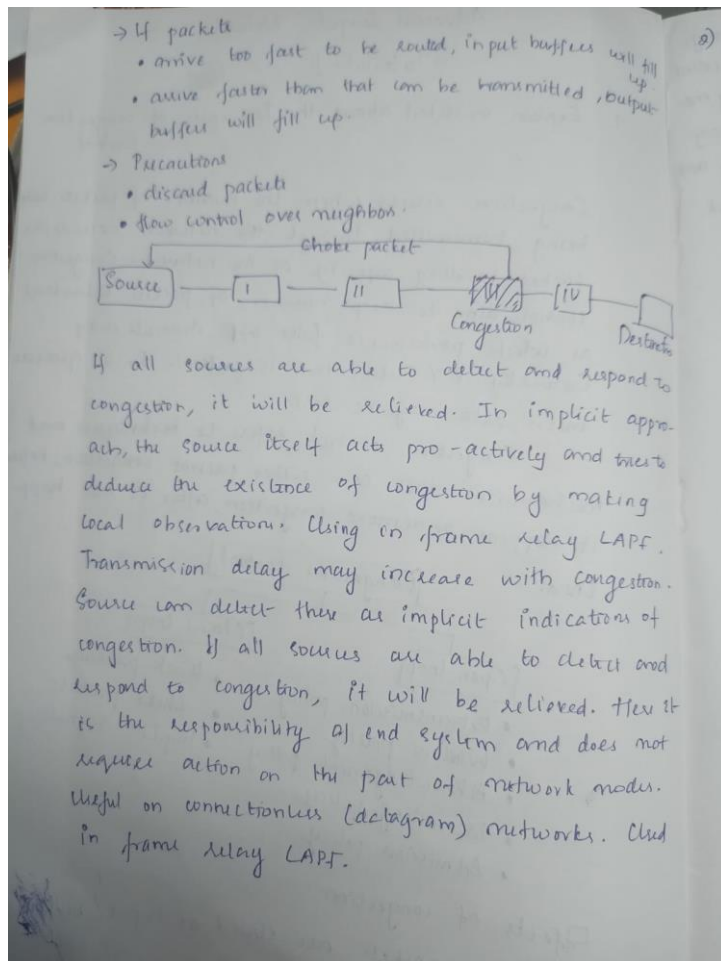 → If packets
• arrive too fast to be routed, input buffers will fill up.
• arrive faster than that can be transmitted, output
buffers will fill up.
→ Precautions
• discard packets
• flow control over neighbor.
choke packet
Source I II III IV
Congestion Destinatn
If all sources are able to detect and respond to
congestion, it will be relieved. In implicit appro-
ach, the source itself acts pro-actively and tries to
deduce the existence of congestion by making
local observations. Using in frame relay LAPF.
Transmission delay may increase with congestion.
Source can detect these as implicit indications of
congestion. If all sources are able to detect and
respond to congestion, it will be relieved. Here it
is the responsibility of end system and does not
require action on the part of network nodes.
Useful on connectionless (datagram) networks. Used
in frame relay LAPF.